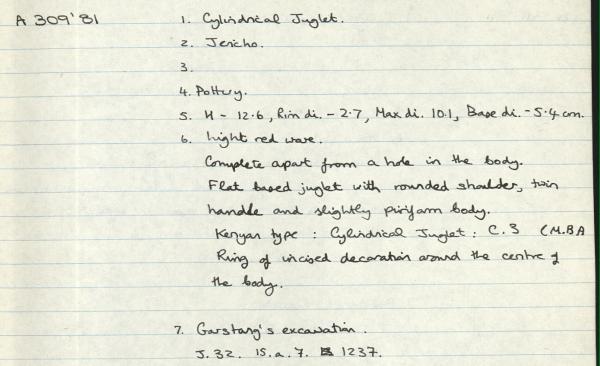 A 309'81 1. Cylindrical Juglet.
2. Jericho.
3.
4. Pottery.
5. H - 12.6, Rim di. - 2.7, Max di. 10.1, Base di. - 5.4 cm.
6. Light red ware.
Complete apart from a hole in the body.
Flat based juglet with rounded shoulder, twin
handle and slightly piriform body.
Kenyan type : Cylindrical Juglet : C.3 (M.BA
Ring of incised decoration around the centre of
the body.
7. Garstang's excavation.
J. 32. 15. a. 7. 1237.